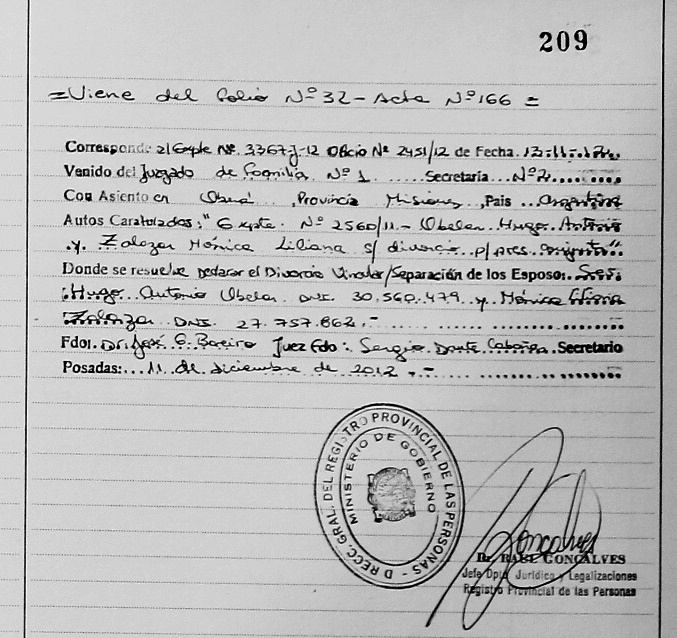 209
=Viene del Folio Nº 32 - Acta Nº 166 =
Corresponde al Expte Nº. 3367-J-12 Oficio Nº 2451/12 de Fecha. 13-11-12
Venido del Juzgado de Familia Nº 1 Secretaria Nº2
Con Asiento en Oberá, Provincia Misiones, País Argentina
Autos Caratulados: "Expte. Nº 2560/11 - Obelar Hugo Antonio
y Zalazar Mónica Liliana s/ divorcio p/pres. conjunta"
Donde se resuelve Declarar el Divorcio Vincular/Separación de los Esposo: Ses:
Hugo Antonio Obelar DNI. 30.560.479 y Mónica Liliana
Zalazar DNI. 27.757.862.-
Fdo. Dr. José G. Juez Fdo: Sergio Dante Secretario
Posadas: 11 de diciembre de 2012.-
DRECC. GRAL. DEL REGISTRO PROVINCIAL DE LAS PERSONAS -
MINISTERIO DE GOBIERNO
Gonçalves
Dr. RAUL GONCALVES
Jefe Dpto. Jurídico y Legalizaciones
Registro Provincial de las Personas